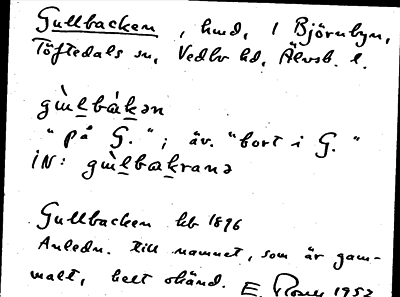 Gullbacken, hmd, 1 Björnbyn,
Töftedals sn, Vedbo hd, Älvsb. l.
gùl̲bàk̲ən
"på G."; äv. "bort i G."
iN: gùl̲bak̲ranə
Gullbacken kb 1896
Anledn. till namnet, som är gam-
malt, helt okänd. E 1952